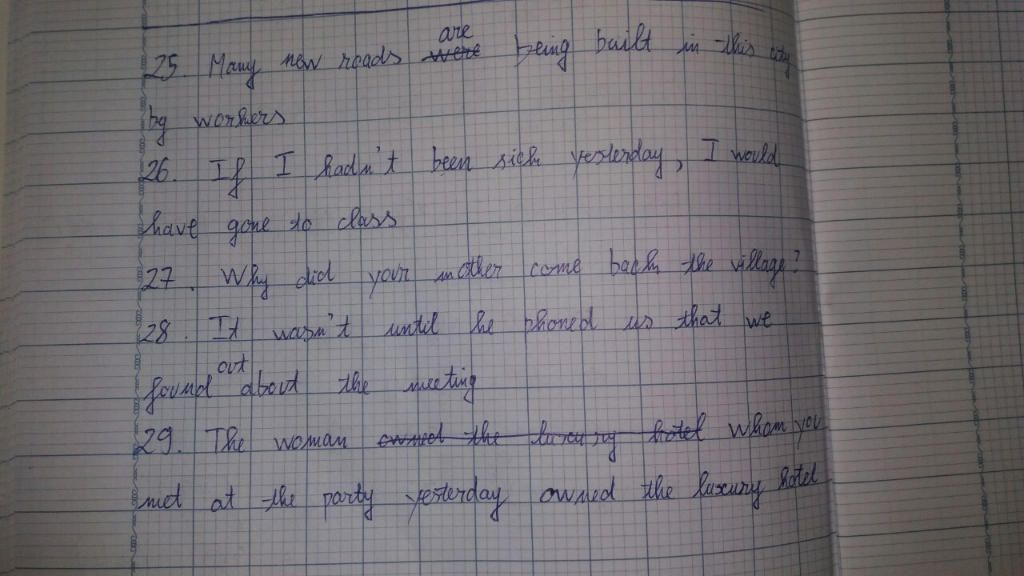 25. Many new roads ~~were~~ are being built in this city
by workers
26. If I hadn't been sick yesterday, I would
have gone to class
27. Why did your mother come back the village?
28. It wasn't until he phoned us that we
found out about the meeting
29. The woman ~~owned the luxury hotel~~ whom you
met at the party yesterday owned the luxury hotel